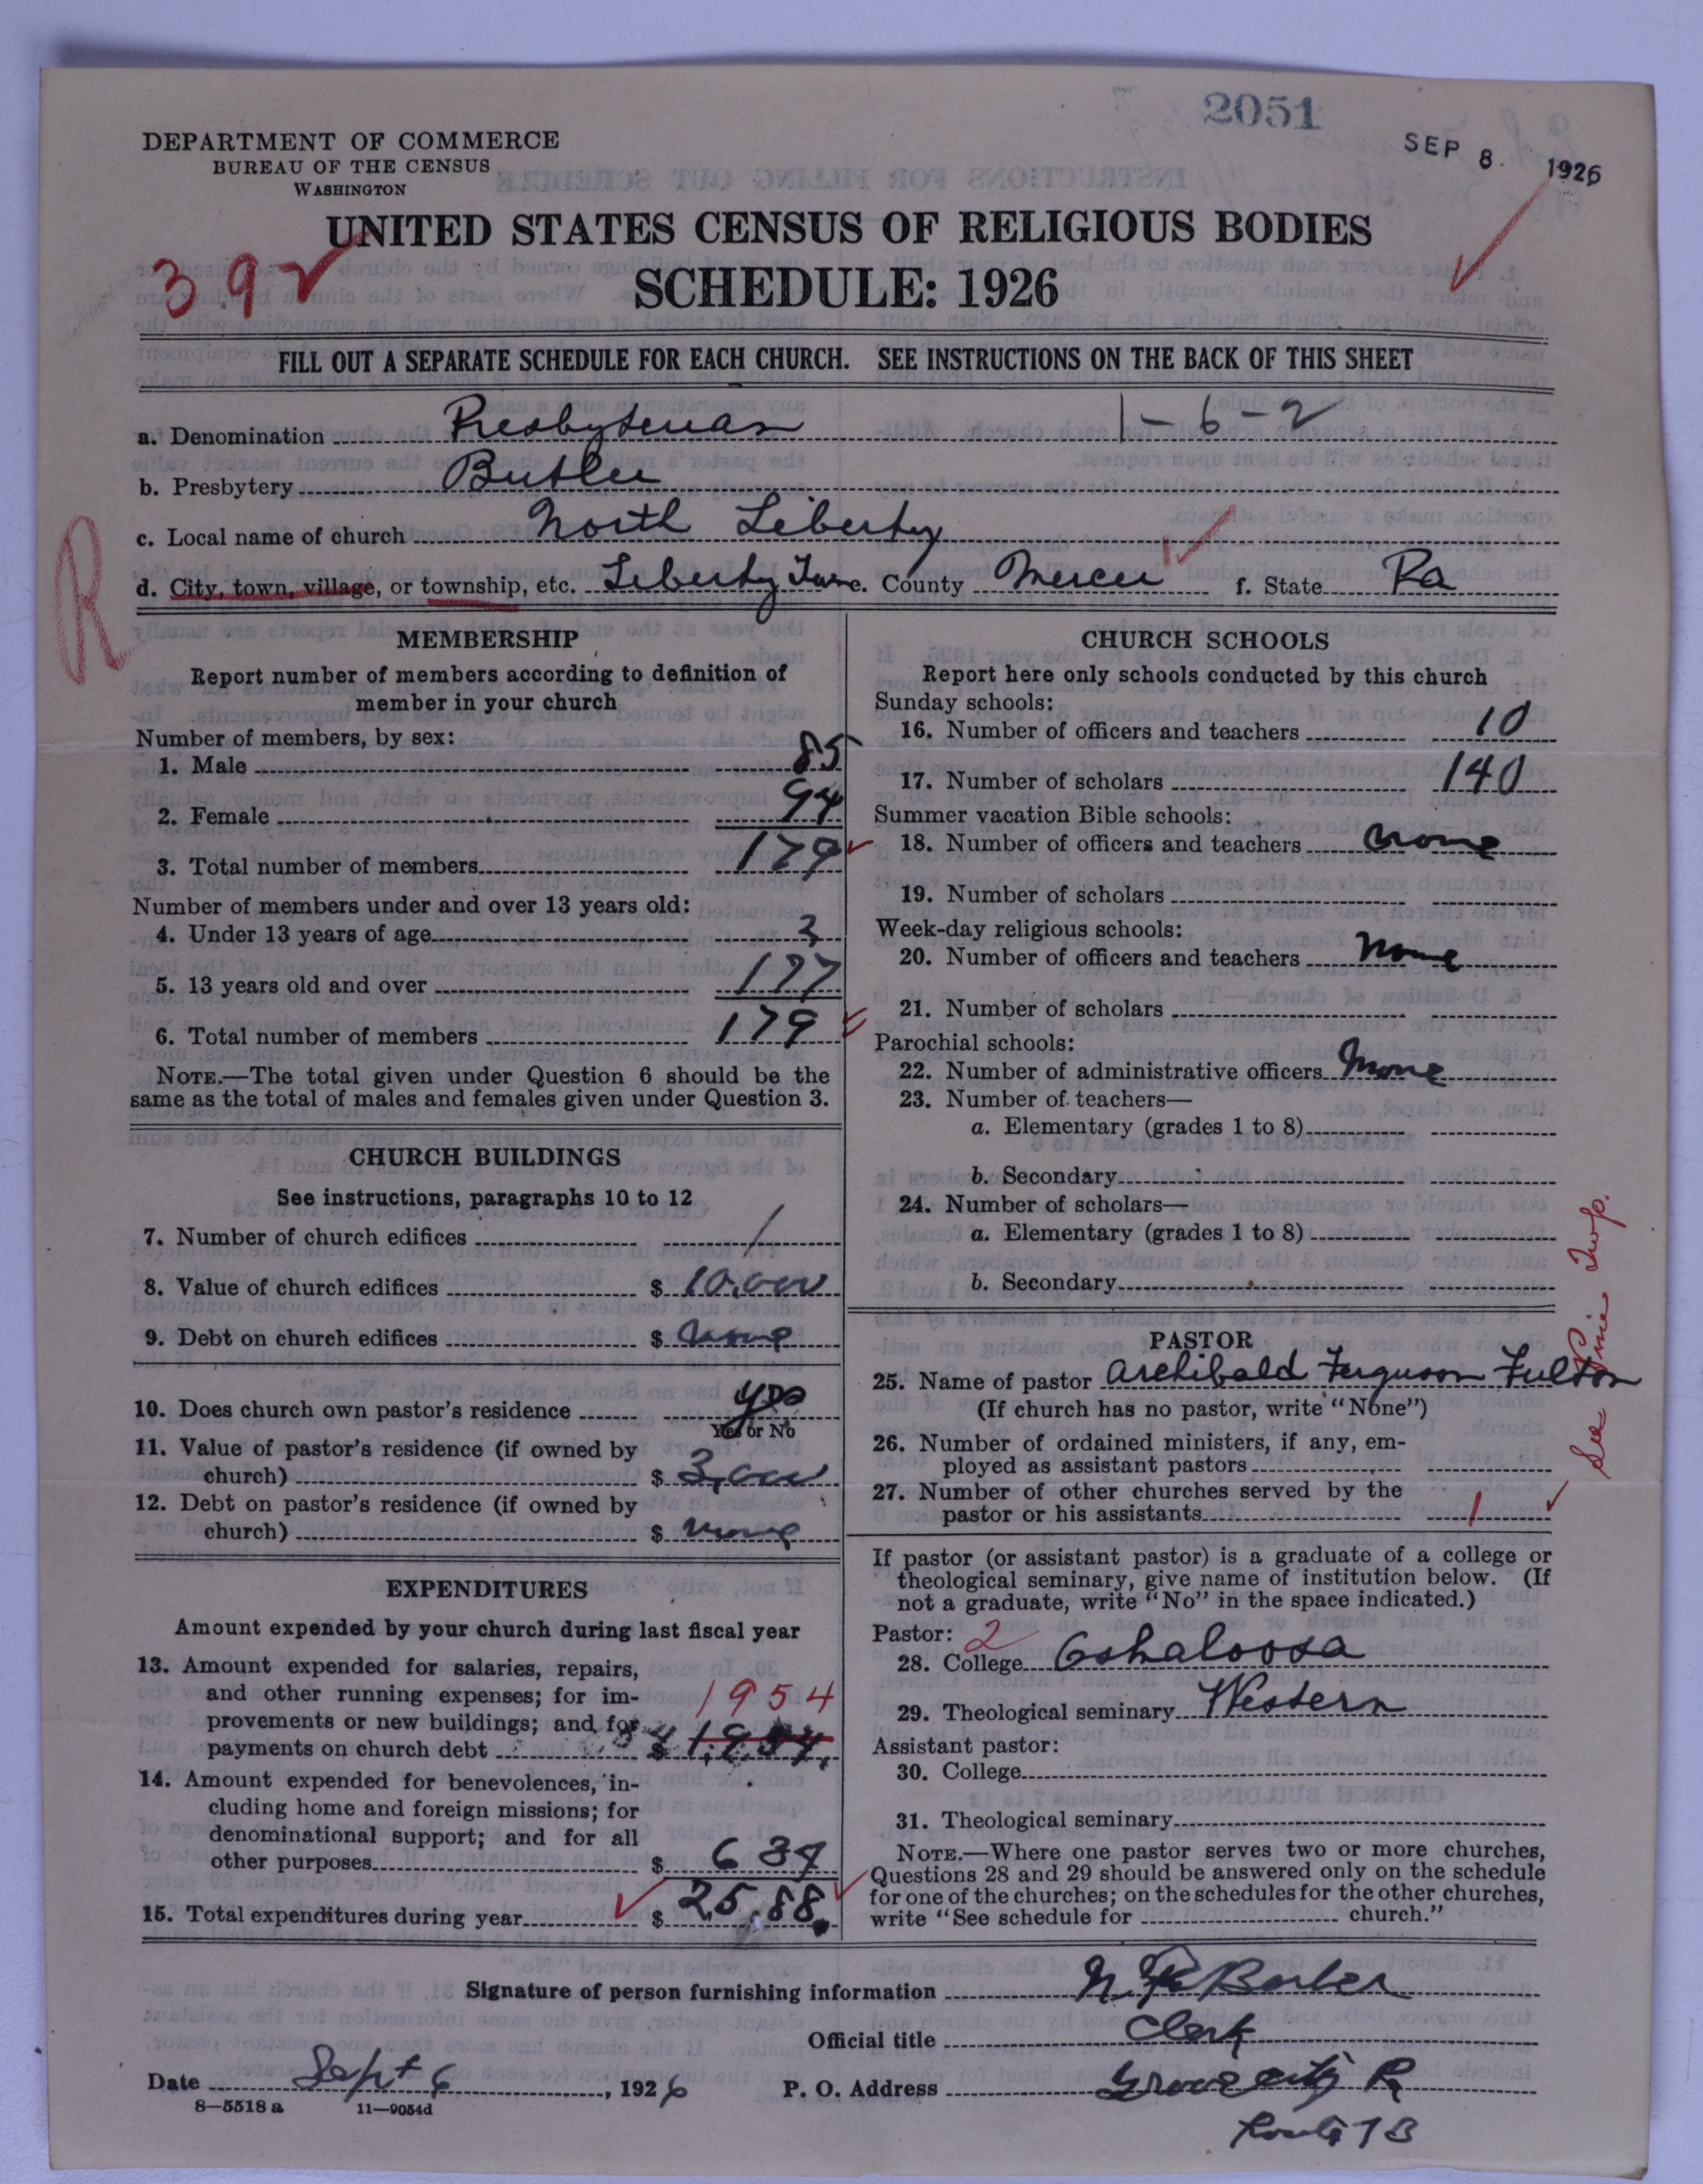 2051
SEP 8. 1926
DEPARTMENT OF COMMERCE
BUREAU OF THE CENSUS
WASHINGTON
UNITED STATES CENSUS OF RELIGIOUS BODIES
SCHEDULE: 1926
392
FILL OUT A SEPARATE SCHEDULE FOR EACH CHURCH. SEE INSTRUCTIONS ON THE BACK OF THIS SHEET
a. Denomination Presbyterian 1-6-2
b. Presbytery Butler
c. Local name of church North Liberty
R
d. City, town, village, or township, etc. Liberty Twp e. County Mercer f. State Pa
MEMBERSHIP
Report number of members according to definition of
member in your church
Number of members, by sex:
1. Male 85
2. Female 94
3. Total number of members 179
Number of members under and over 13 years old:
4. Under 13 years of age
5. 13 years old and over 177
6. Total number of members 179
NOTE.—The total given under Question 6 should be the
same as the total of males and females given under Question 3.
CHURCH BUILDINGS
See instructions, paragraphs 10 to 12
7. Number of church edifices 1
8. Value of church edifices $ 10,000
9. Debt on church edifices $ none
10. Does church own pastor's residence yes
Yes or No
11. Value of pastor's residence (if owned by
church) $ 3,000
12. Debt on pastor's residence (if owned by
church) $ none
EXPENDITURES
Amount expended by your church during last fiscal year
13. Amount expended for salaries, repairs,
and other running expenses; for im-
provements or new buildings; and for 1954
payments on church debt $ 1,954.
14. Amount expended for benevolences, in-
cluding home and foreign missions; for
denominational support; and for all
other purposes $ 634
15. Total expenditures during year $ 25,88.
CHURCH SCHOOLS
Report here only schools conducted by this church
Sunday schools:
16. Number of officers and teachers 10
17. Number of scholars 140
Summer vacation Bible schools:
18. Number of officers and teachers none
19. Number of scholars
Week-day religious schools:
20. Number of officers and teachers none
21. Number of scholars
Parochial schools:
22. Number of administrative officers none
23. Number of teachers—
a. Elementary (grades 1 to 8)
b. Secondary
24. Number of scholars—
a. Elementary (grades 1 to 8)
b. Secondary
PASTOR
25. Name of pastor Archibald Ferguson Fulton
(If church has no pastor, write "None")
26. Number of ordained ministers, if any, em-
ployed as assistant pastors
27. Number of other churches served by the
pastor or his assistants 1
See Pine Twp.
If pastor (or assistant pastor) is a graduate of a college or
theological seminary, give name of institution below. (If
not a graduate, write "No" in the space indicated.)
Pastor: 2
28. College Oskaloosa
29. Theological seminary Western
Assistant pastor:
30. College
31. Theological seminary
NOTE.—Where one pastor serves two or more churches,
Questions 28 and 29 should be answered only on the schedule
for one of the churches; on the schedules for the other churches,
write "See schedule for church."
Signature of person furnishing information
Official title Clerk
Date Sept 6, 1926 P. O. Address Grove City Pa
8—5518a 11—9054d
Route 73